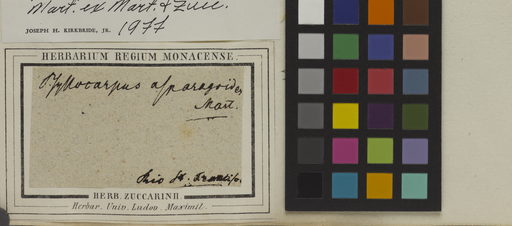 Mart. ex Mart. & Zucc.
JOSEPH H. KIRKBRIDE, JR. 1977
HERBARIUM REGIUM MONACENSE.
Phyllocarpus asparagoides
Mart.
Rio St. Francisc.
HERB. ZUCCARINII
Herbar. Univ. Ludov. Maximil.